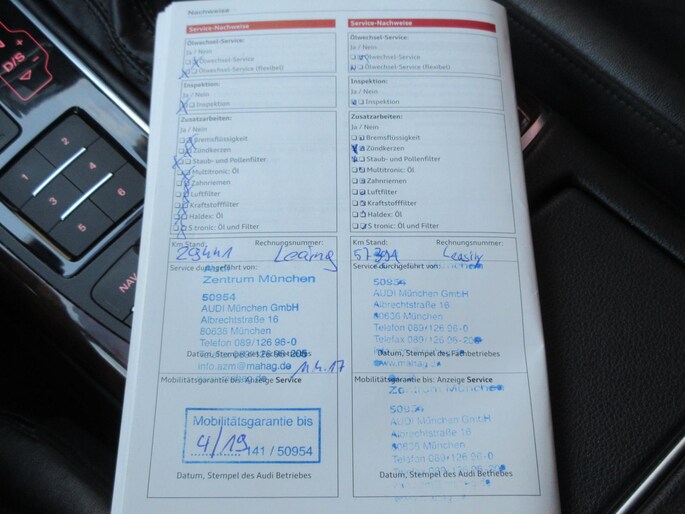 Nachweise
Service-Nachweise
Ölwechsel-Service:
Ja / Nein
Ölwechsel-Service
Ölwechsel-Service (flexibel)
Inspektion:
Ja / Nein
Inspektion
Zusatzarbeiten:
Ja / Nein
Bremsflüssigkeit
Zündkerzen
Staub- und Pollenfilter
Multitronic: Öl
Zahnriemen
Luftfilter
Kraftstofffilter
Haldex: Öl
S tronic: Öl und Filter
Km Stand: Rechnungsnummer:
29441 Leasing
Service durchgeführt von:
Audi
Zentrum München
50954
AUDI München GmbH
Albrechtstraße 16
80636 München
Telefon 089/126 96-0
Datum, Stempel des Fachbetriebes
info.azm@mahag.de 11.4.17
Mobilitätsgarantie bis: Anzeige Service
Mobilitätsgarantie bis
4/19 141 / 50954
Datum, Stempel des Audi Betriebes
Service-Nachweise
Ölwechsel-Service:
Ja / Nein
Ölwechsel-Service
Ölwechsel-Service (flexibel)
Inspektion:
Ja / Nein
Inspektion
Zusatzarbeiten:
Ja / Nein
Bremsflüssigkeit
Zündkerzen
Staub- und Pollenfilter
Multitronic: Öl
Zahnriemen
Luftfilter
Kraftstofffilter
Haldex: Öl
S tronic: Öl und Filter
Km Stand: Rechnungsnummer:
Leasing
Service durchgeführt von:
50954
AUDI München GmbH
Albrechtstraße 16
80636 München
Telefon 089/126 96-0
Telefax 089/126 96-
Datum, Stempel des Fachbetriebes
Mobilitätsgarantie bis: Anzeige Service
Zentrum München
50954
AUDI München GmbH
Albrechtstraße 16
80636 München
Telefon 089/126 96-0
Datum, Stempel des Audi Betriebes
D/S
NAV
1
2
3
4
5
6